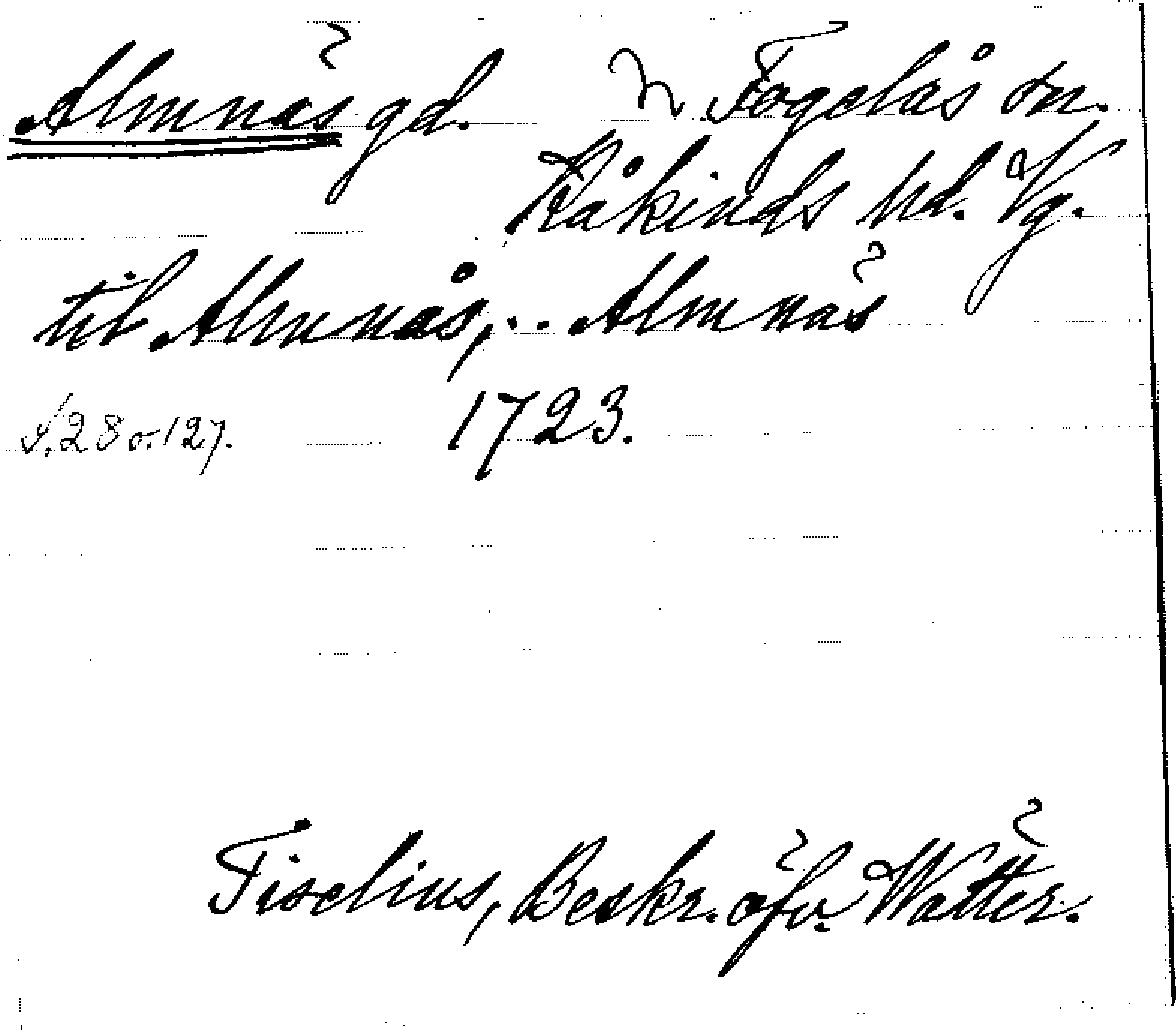 Almnäs gd. n Fogelås sn.
Kåkinds hd. Vg.
til Almnås, .. Almnäs
s. 28 o. 127. 1723.
Tiselius, Beskr. öfv. Wätter.